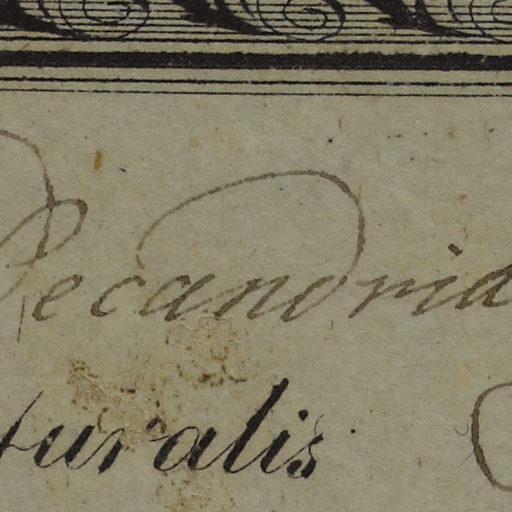 Decandria
turalis